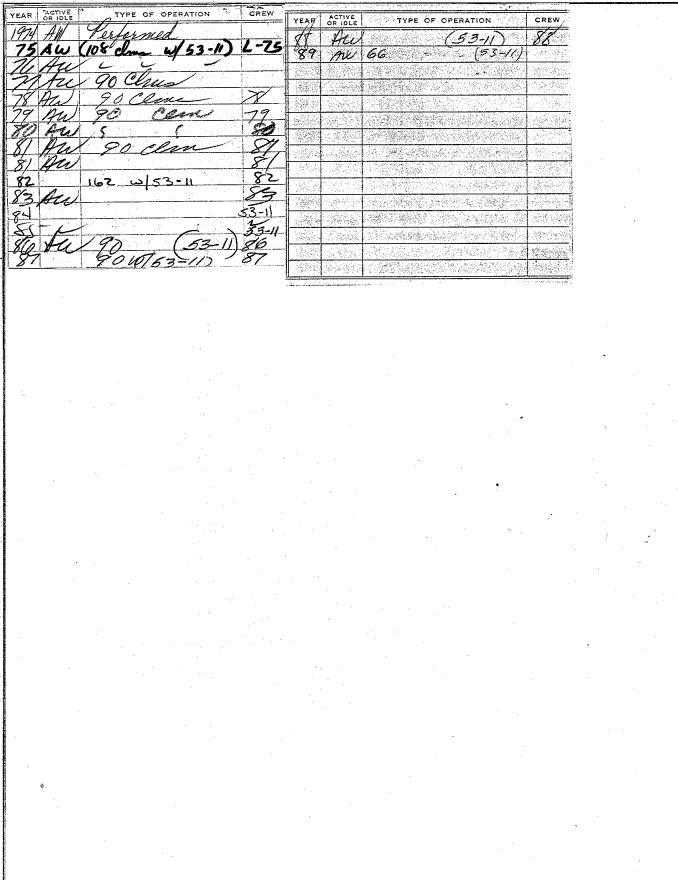 YEAR ACTIVE OR IDLE TYPE OF OPERATION CREW
1974 AW Performed
75 AW (108 clms w/53-11) L-75
76 AW " " "
77 AW 90 Clms
78 AW 90 Clms 78
79 AW 90 Clms 79
80 AW " " 80
81 AW 90 clm 81
81 AW 81
82 162 w/53-11 82
83 AW 83
84 53-11
85 53-11
86 AW 90 (53-11) 86
87 90 w/53-11) 87
YEAR ACTIVE OR IDLE TYPE OF OPERATION CREW
88 AW (53-11) 88
89 AW 66 - - (53-11)